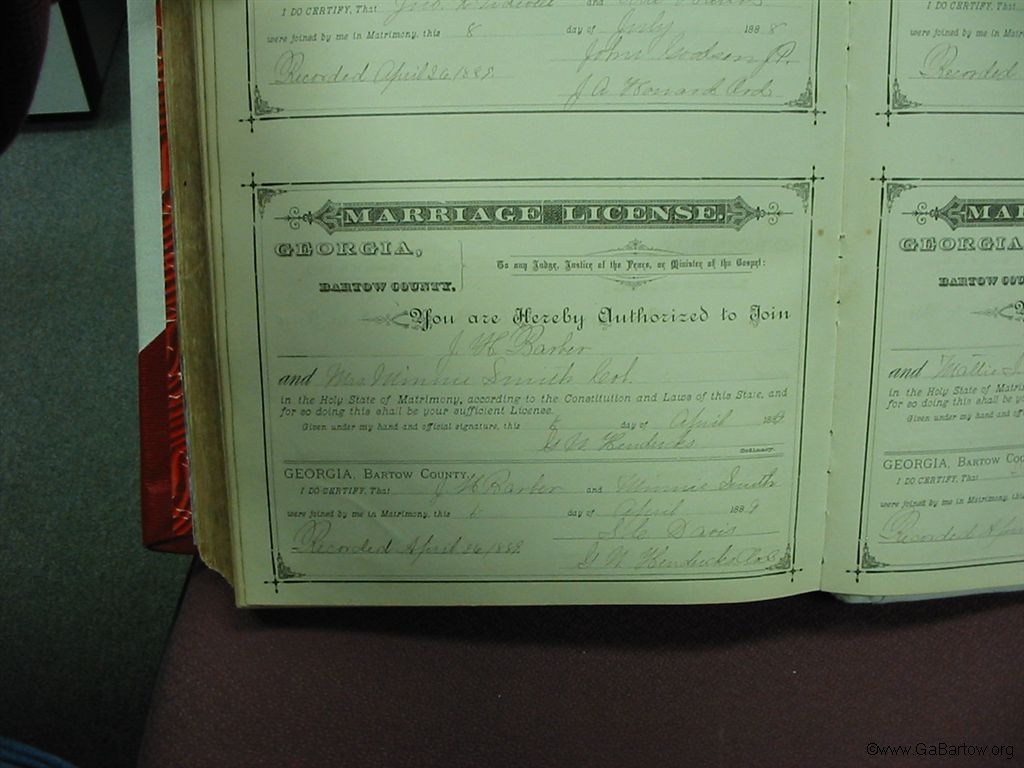 I DO CERTIFY, That Jno. and
were joined by me in Matrimony, this 8 day of July 1888
John Godson J.P.
Recorded April 26/1889.
J A Howard Ord
MARRIAGE LICENSE.
GEORGIA,
BARTOW COUNTY.
To any Judge, Justice of the Peace, or Minister of the Gospel:
You are Hereby Authorized to Join
J. H. Barber
and Mrs Minnie Smith Col.
in the Holy State of Matrimony, according to the Constitution and Laws of this State, and
for so doing this shall be your sufficient License.
Given under my hand and official signature, this 6 day of April 1889
G. W. Hendricks
Ordinary.
GEORGIA, BARTOW COUNTY.
I DO CERTIFY, That J H Barber and Minnie Smith
were joined by me in Matrimony, this 6 day of April 1889
Davis
Recorded April 26/1889.
G W Hendricks
I DO CERTIFY, That
were joined by me in Matrim
Recorded
MAR
GEORGIA
BARTOW COU
You
and Mattie
in the Holy State of Matrim
for so doing this shall be yo
Given under my hand and of
GEORGIA, BARTOW COU
I DO CERTIFY, That
were joined by me in Matrim
Recorded Apr
©www.GaBartow.org